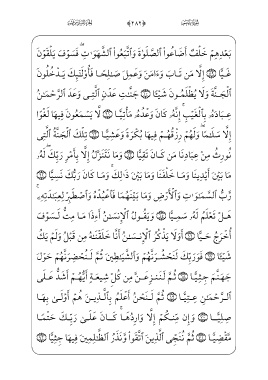 بَعْدِهِمْ خَلْفٌ أَضَاعُوا۟ ٱلصَّلَوٰةَ وَٱتَّبَعُوا۟ ٱلشَّهَوَٰتِ فَسَوْفَ يَلْقَوْنَ
غَيًّا ٥٩ إِلَّا مَن تَابَ وَءَامَنَ وَعَمِلَ صَٰلِحًا فَأُو۟لَٰٓئِكَ يَدْخُلُونَ
ٱلْجَنَّةَ وَلَا يُظْلَمُونَ شَيْـًٔا ٦٠ جَنَّٰتِ عَدْنٍ ٱلَّتِى وَعَدَ ٱلرَّحْمَٰنُ
عِبَادَهُۥ بِٱلْغَيْبِ إِنَّهُۥ كَانَ وَعْدُهُۥ مَأْتِيًّا ٦١ لَّا يَسْمَعُونَ فِيهَا لَغْوًا
إِلَّا سَلَٰمًا وَلَهُمْ رِزْقُهُمْ فِيهَا بُكْرَةً وَعَشِيًّا ٦٢ تِلْكَ ٱلْجَنَّةُ ٱلَّتِى
نُورِثُ مِنْ عِبَادِنَا مَن كَانَ تَقِيًّا ٦٣ وَمَا نَتَنَزَّلُ إِلَّا بِأَمْرِ رَبِّكَ لَهُۥ
مَا بَيْنَ أَيْدِينَا وَمَا خَلْفَنَا وَمَا بَيْنَ ذَٰلِكَ وَمَا كَانَ رَبُّكَ نَسِيًّا ٦٤
رَّبُّ ٱلسَّمَٰوَٰتِ وَٱلْأَرْضِ وَمَا بَيْنَهُمَا فَٱعْبُدْهُ وَٱصْطَبِرْ لِعِبَٰدَتِهِۦ
هَلْ تَعْلَمُ لَهُۥ سَمِيًّا ٦٥ وَيَقُولُ ٱلْإِنسَٰنُ أَءِذَا مَا مِتُّ لَسَوْفَ
أُخْرَجُ حَيًّا ٦٦ أَوَلَا يَذْكُرُ ٱلْإِنسَٰنُ أَنَّا خَلَقْنَٰهُ مِن قَبْلُ وَلَمْ يَكُ
شَيْـًٔا ٦٧ فَوَرَبِّكَ لَنَحْشُرَنَّهُمْ وَٱلشَّيَٰطِينَ ثُمَّ لَنُحْضِرَنَّهُمْ حَوْلَ
جَهَنَّمَ جِثِيًّا ٦٨ ثُمَّ لَنَنزِعَنَّ مِن كُلِّ شِيعَةٍ أَيُّهُمْ أَشَدُّ عَلَى
ٱلرَّحْمَٰنِ عِتِيًّا ٦٩ ثُمَّ لَنَحْنُ أَعْلَمُ بِٱلَّذِينَ هُمْ أَوْلَىٰ بِهَا
صِلِيًّا ٧٠ وَإِن مِّنكُمْ إِلَّا وَارِدُهَا كَانَ عَلَىٰ رَبِّكَ حَتْمًا
مَّقْضِيًّا ٧١ ثُمَّ نُنَجِّى ٱلَّذِينَ ٱتَّقَوا۟ وَّنَذَرُ ٱلظَّٰلِمِينَ فِيهَا جِثِيًّا ٧٢